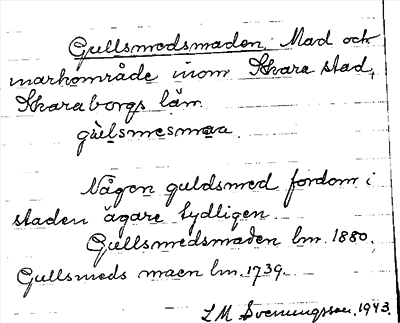 Gullsmedsmaden. Mad och
markområde inom Skara stad,
Skaraborgs län.
gu̇lsmesmaa.
Någon guldsmed fordom i
staden ägare tydligen.
Gullsmedsmaden lm. 1880.
Gullsmeds maen lm. 1739.
L M Svenungsson. 1943.